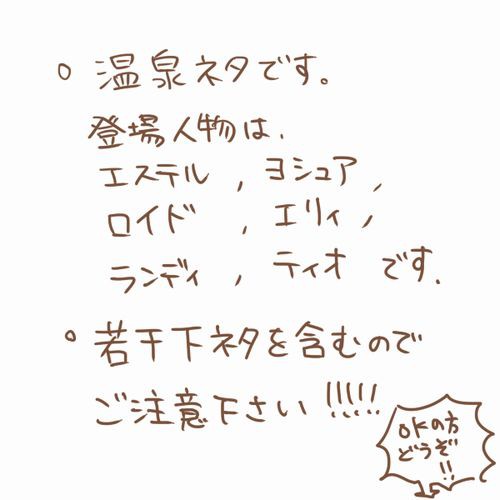 。温泉ネタです。
登場人物は、
エステル , ヨシュア ,
ロイド , エリィ ,
ランディ , ティオ です.
。若干下ネタを含むので
ご注意下さい!!!!!
OKの方
どうぞ!!